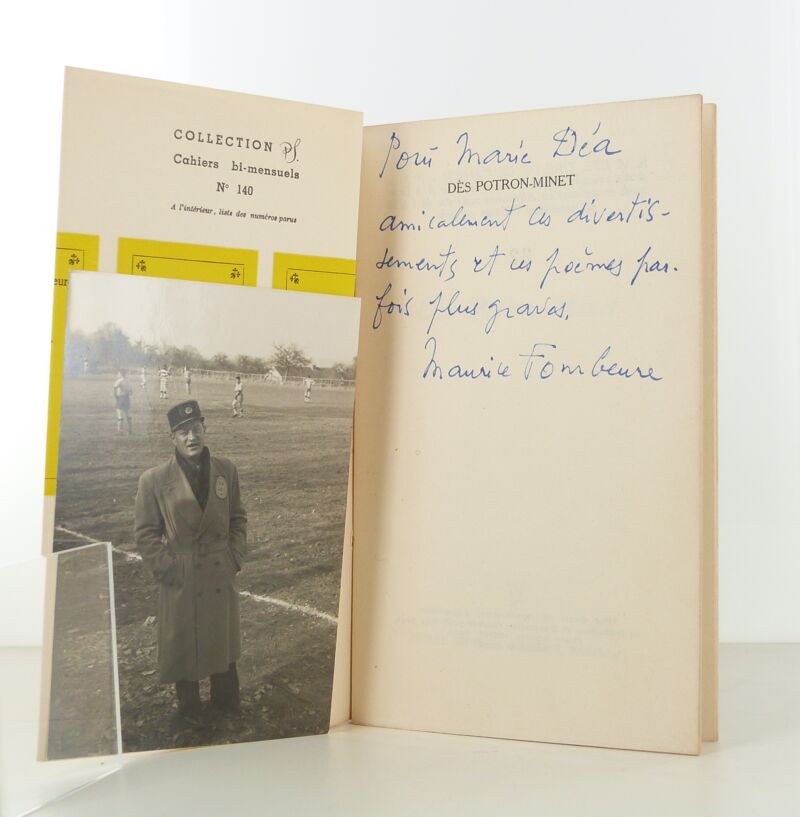 COLLECTION PS.
Cahiers bi-mensuels
N° 140
A l'intérieur, liste des numéros parus
Pour Marie Déa
DÈS POTRON-MINET
amicalement ces divertis-
sements et ces poèmes par-
fois plus graves.
Maurice Fombeure